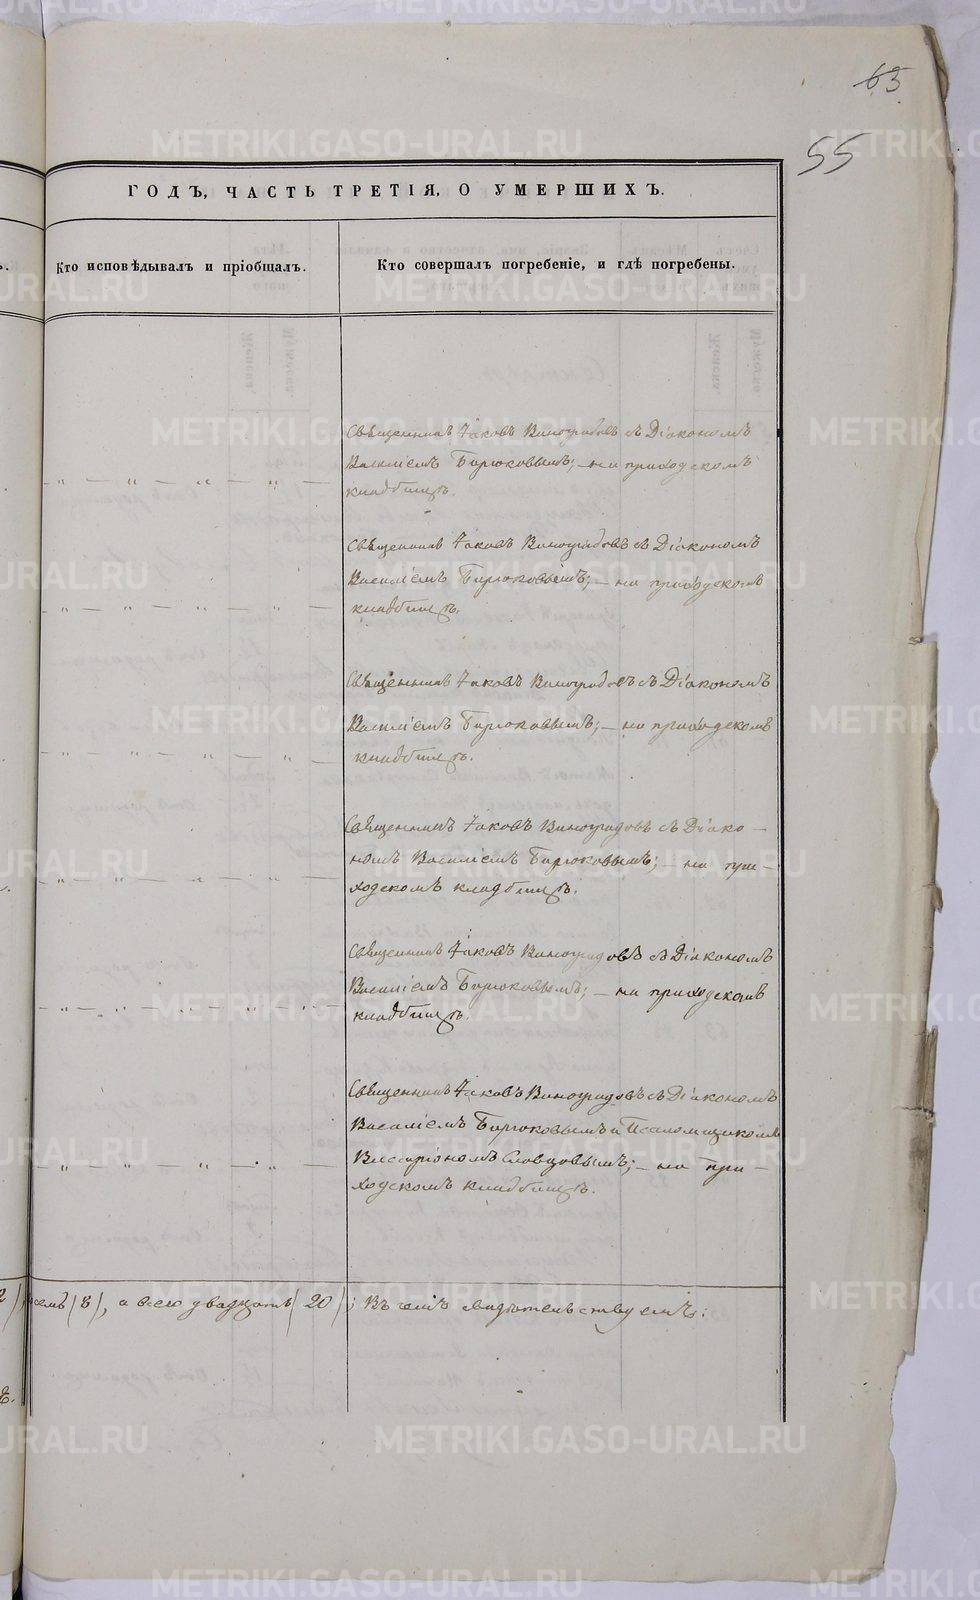 63
55
ГОДЪ, ЧАСТЬ ТРЕТІЯ, О УМЕРШИХЪ.
Кто исповѣдывалъ и пріобщалъ.
Кто совершалъ погребеніе, и гдѣ погребены.
Священникъ Іаковъ Виноградовъ съ Діакономъ
Василіемъ Бирюковымъ; – на приходскомъ
кладбищѣ.
Священникъ Іаковъ Виноградовъ съ Діакономъ
Василіемъ Бирюковымъ; – на приходскомъ
кладбищѣ.
Священникъ Іаковъ Виноградовъ съ Діакономъ
Василіемъ Бирюковымъ; – на приходскомъ
кладбищѣ.
Священникъ Іаковъ Виноградовъ съ Діако–
номъ Василіемъ Бирюковымъ; – на при–
ходскомъ кладбищѣ.
Священникъ Іаковъ Виноградовъ съ Діакономъ
Василіемъ Бирюковымъ; – на приходскомъ
кладбищѣ.
Священникъ Іаковъ Виноградовъ съ Діакономъ
Василіемъ Бирюковымъ и Псаломщикомъ
Виссаріономъ Словцовымъ; – на при–
ходскомъ кладбищѣ.
(8), а всего двадцать (20); Въ чемъ свидѣтельствуемъ:
METRIKI.GASO-URAL.RU